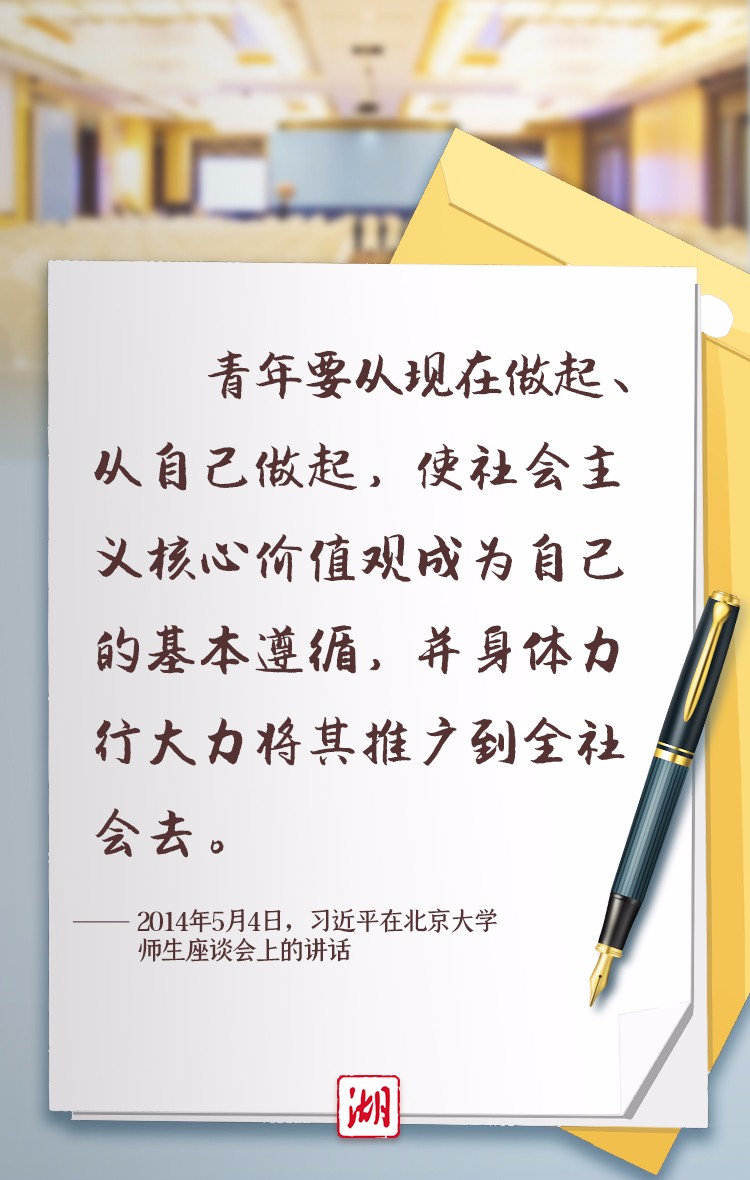 青年要从现在做起、
从自己做起，使社会主
义核心价值观成为自己
的基本遵循，并身体力
行大力将其推广到全社
会去。
—— 2014年5月4日，习近平在北京大学
师生座谈会上的讲话
湖